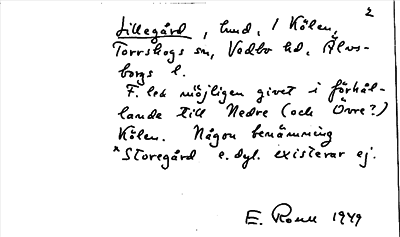 2
Lillegård, hmd, 1 Kölen,
Torrskogs sn, Vedbo hd, Älvs-
borgs l.
F. led möjligen givet i förhål-
lande till Nedre (och Övre?)
Kölen. Någon benämning
*Storegård e. dyl. existerar ej.
E. Rosell 1949